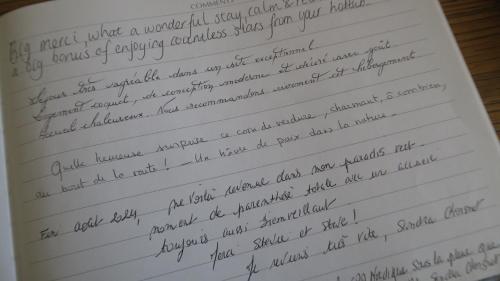 COMMENTS
Big merci, what a wonderful stay, calm &
a big bonus of enjoying countless stars from your hottub
Séjour très agréable dans un site exceptionnel
Logement coquet, de conception moderne et décoré avec goût
Accueil chaleureux. Nous recommandons vivement cet hébergement
Quelle heureuse surprise ce coin de verdure, charmant, ô combien,
au bout de la route ! — Un hâvre de paix dans la nature —
Fin août 2024, me voilà revenue dans mon paradis vert
moment de parenthèse totale avec un accueil
toujours aussi bienveillant
Merci Steve et !
Je reviens très vite, Sandra
Nordique sous la pluie que
Sandra